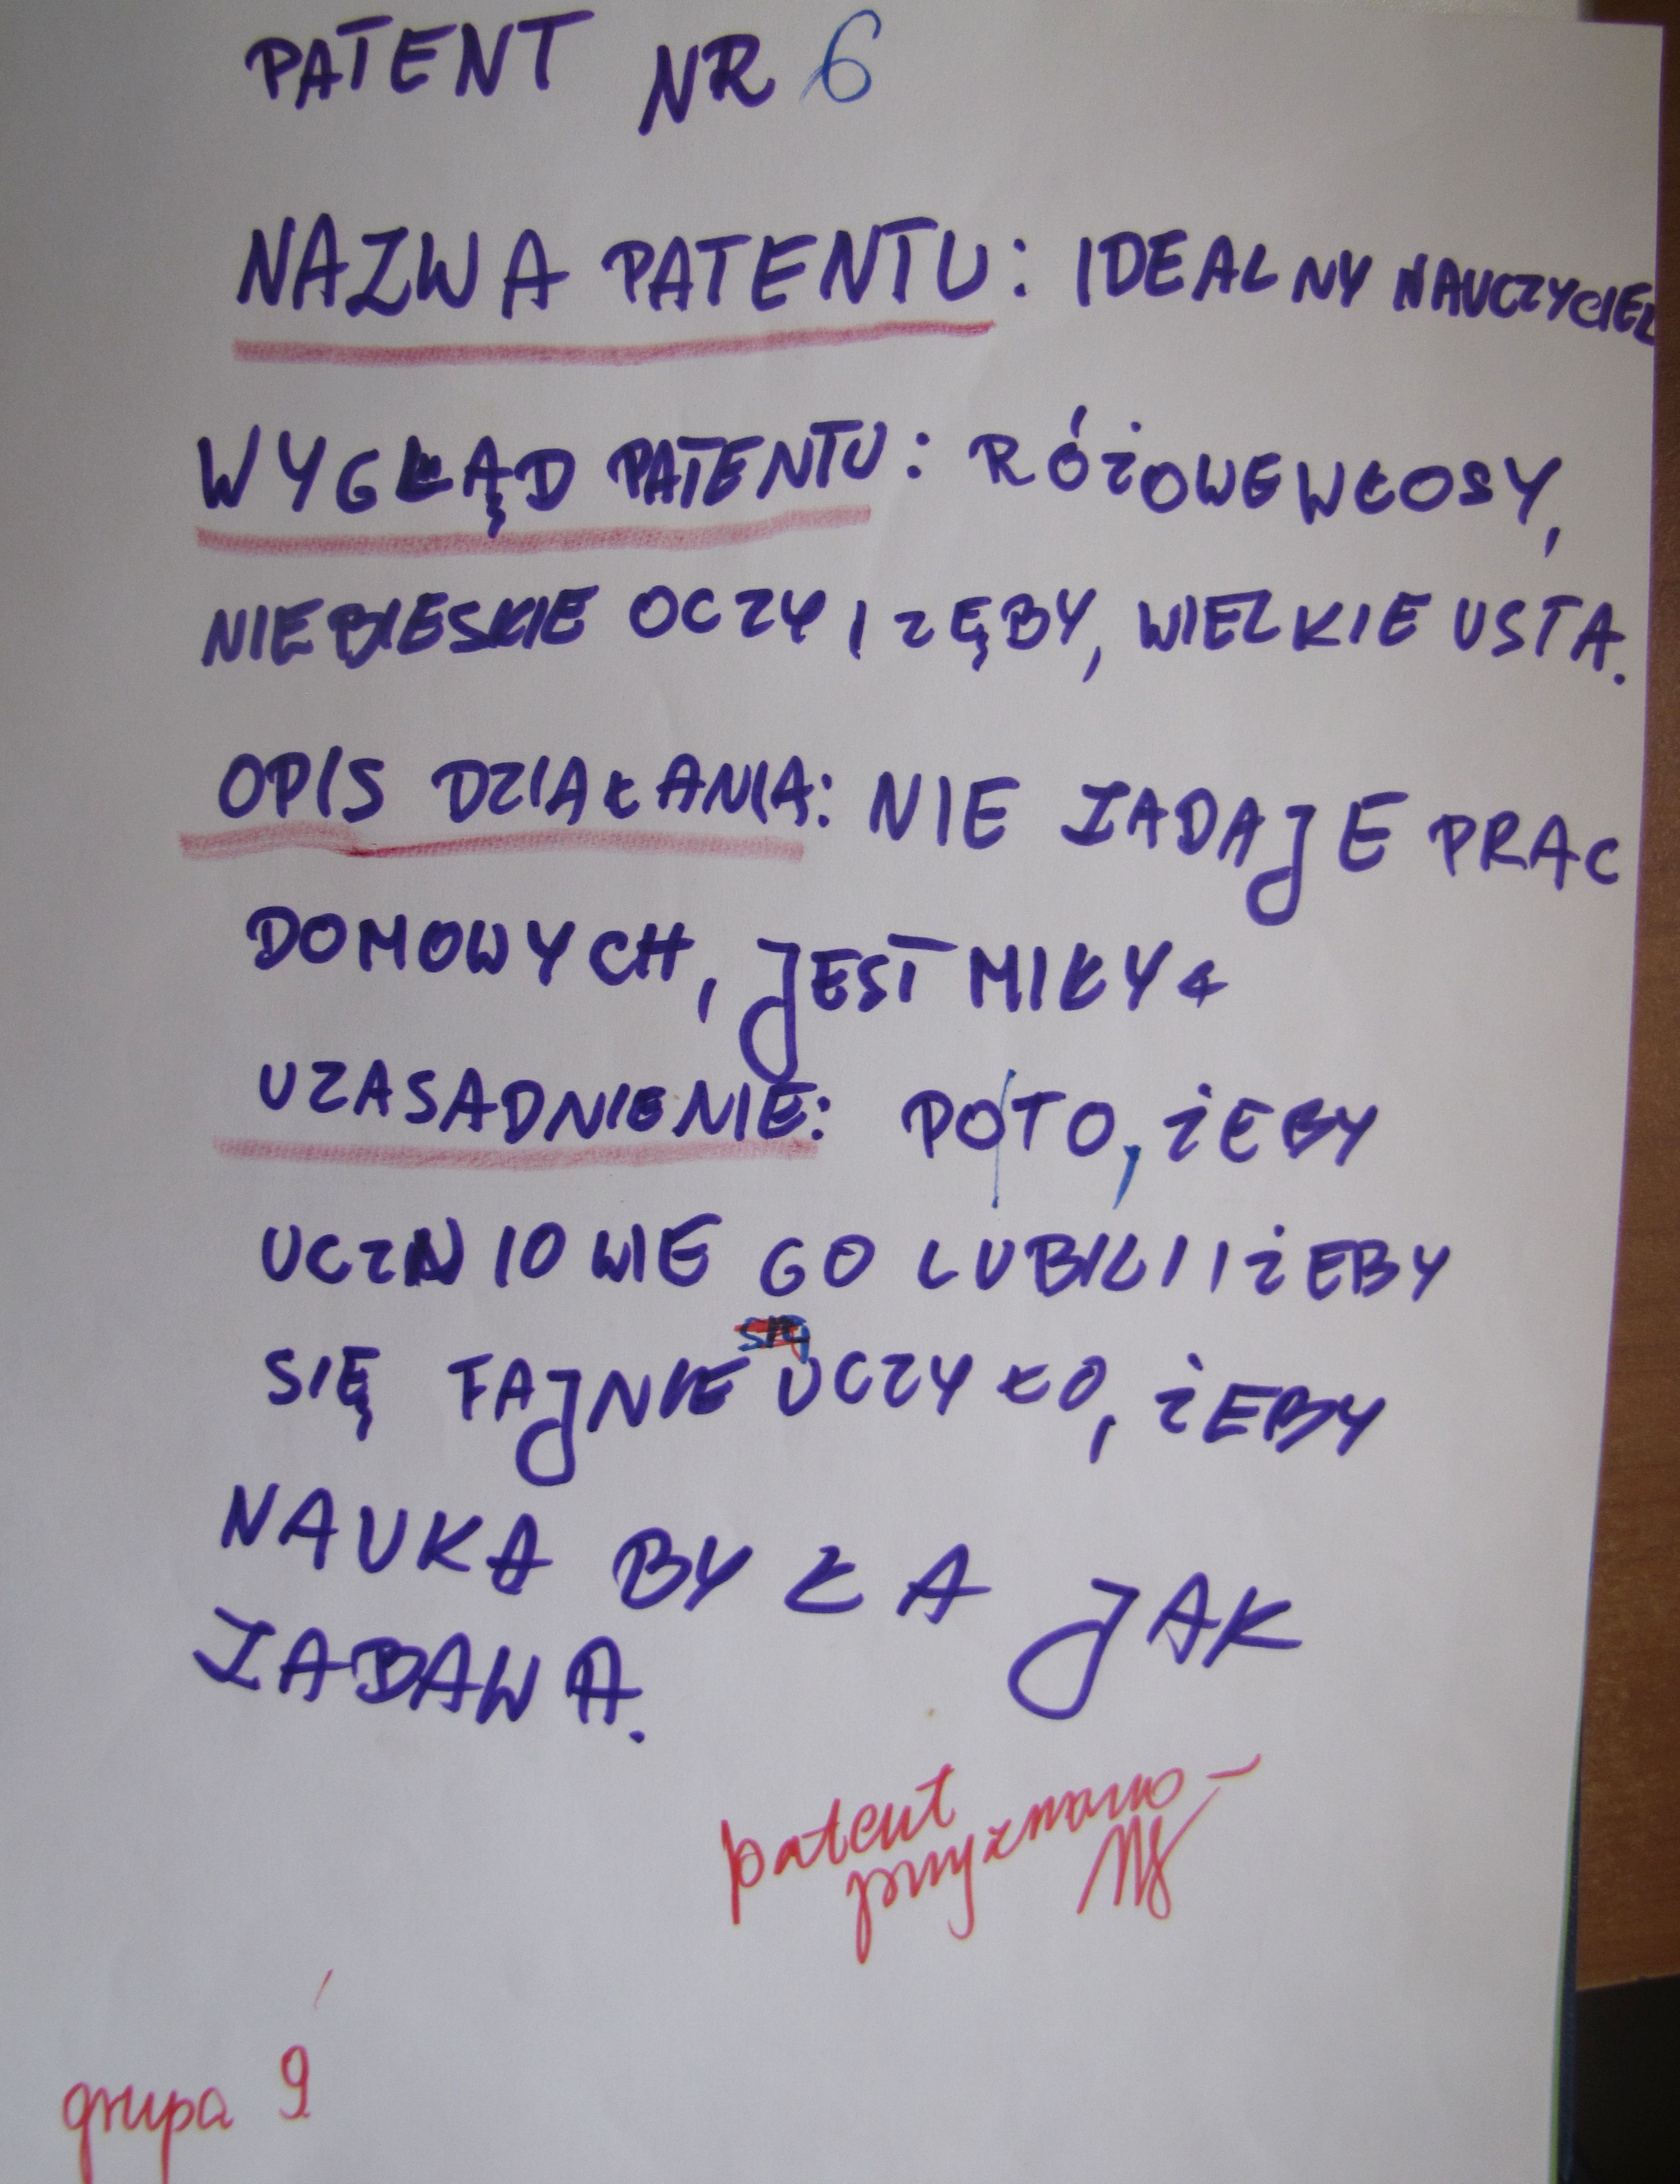 PATENT NR 6
NAZWA PATENTU: IDEALNY NAUCZYCIEL
WYGLĄD PATENTU: RÓŻOWE WŁOSY,
NIEBIESKIE OCZY I ZĘBY, WIELKIE USTA.
OPIS DZIAŁANIA: NIE ZADAJE PRAC
DOMOWYCH, JEST MIŁY
UZASADNIENIE: PO TO, ŻEBY
UCZNIOWIE GO LUBILI I ŻEBY
SIĘ FAJNIE UCZYŁO, ŻEBY
NAUKA BYŁA JAK
ZABAWA.
patent
przyznano-
grupa 9